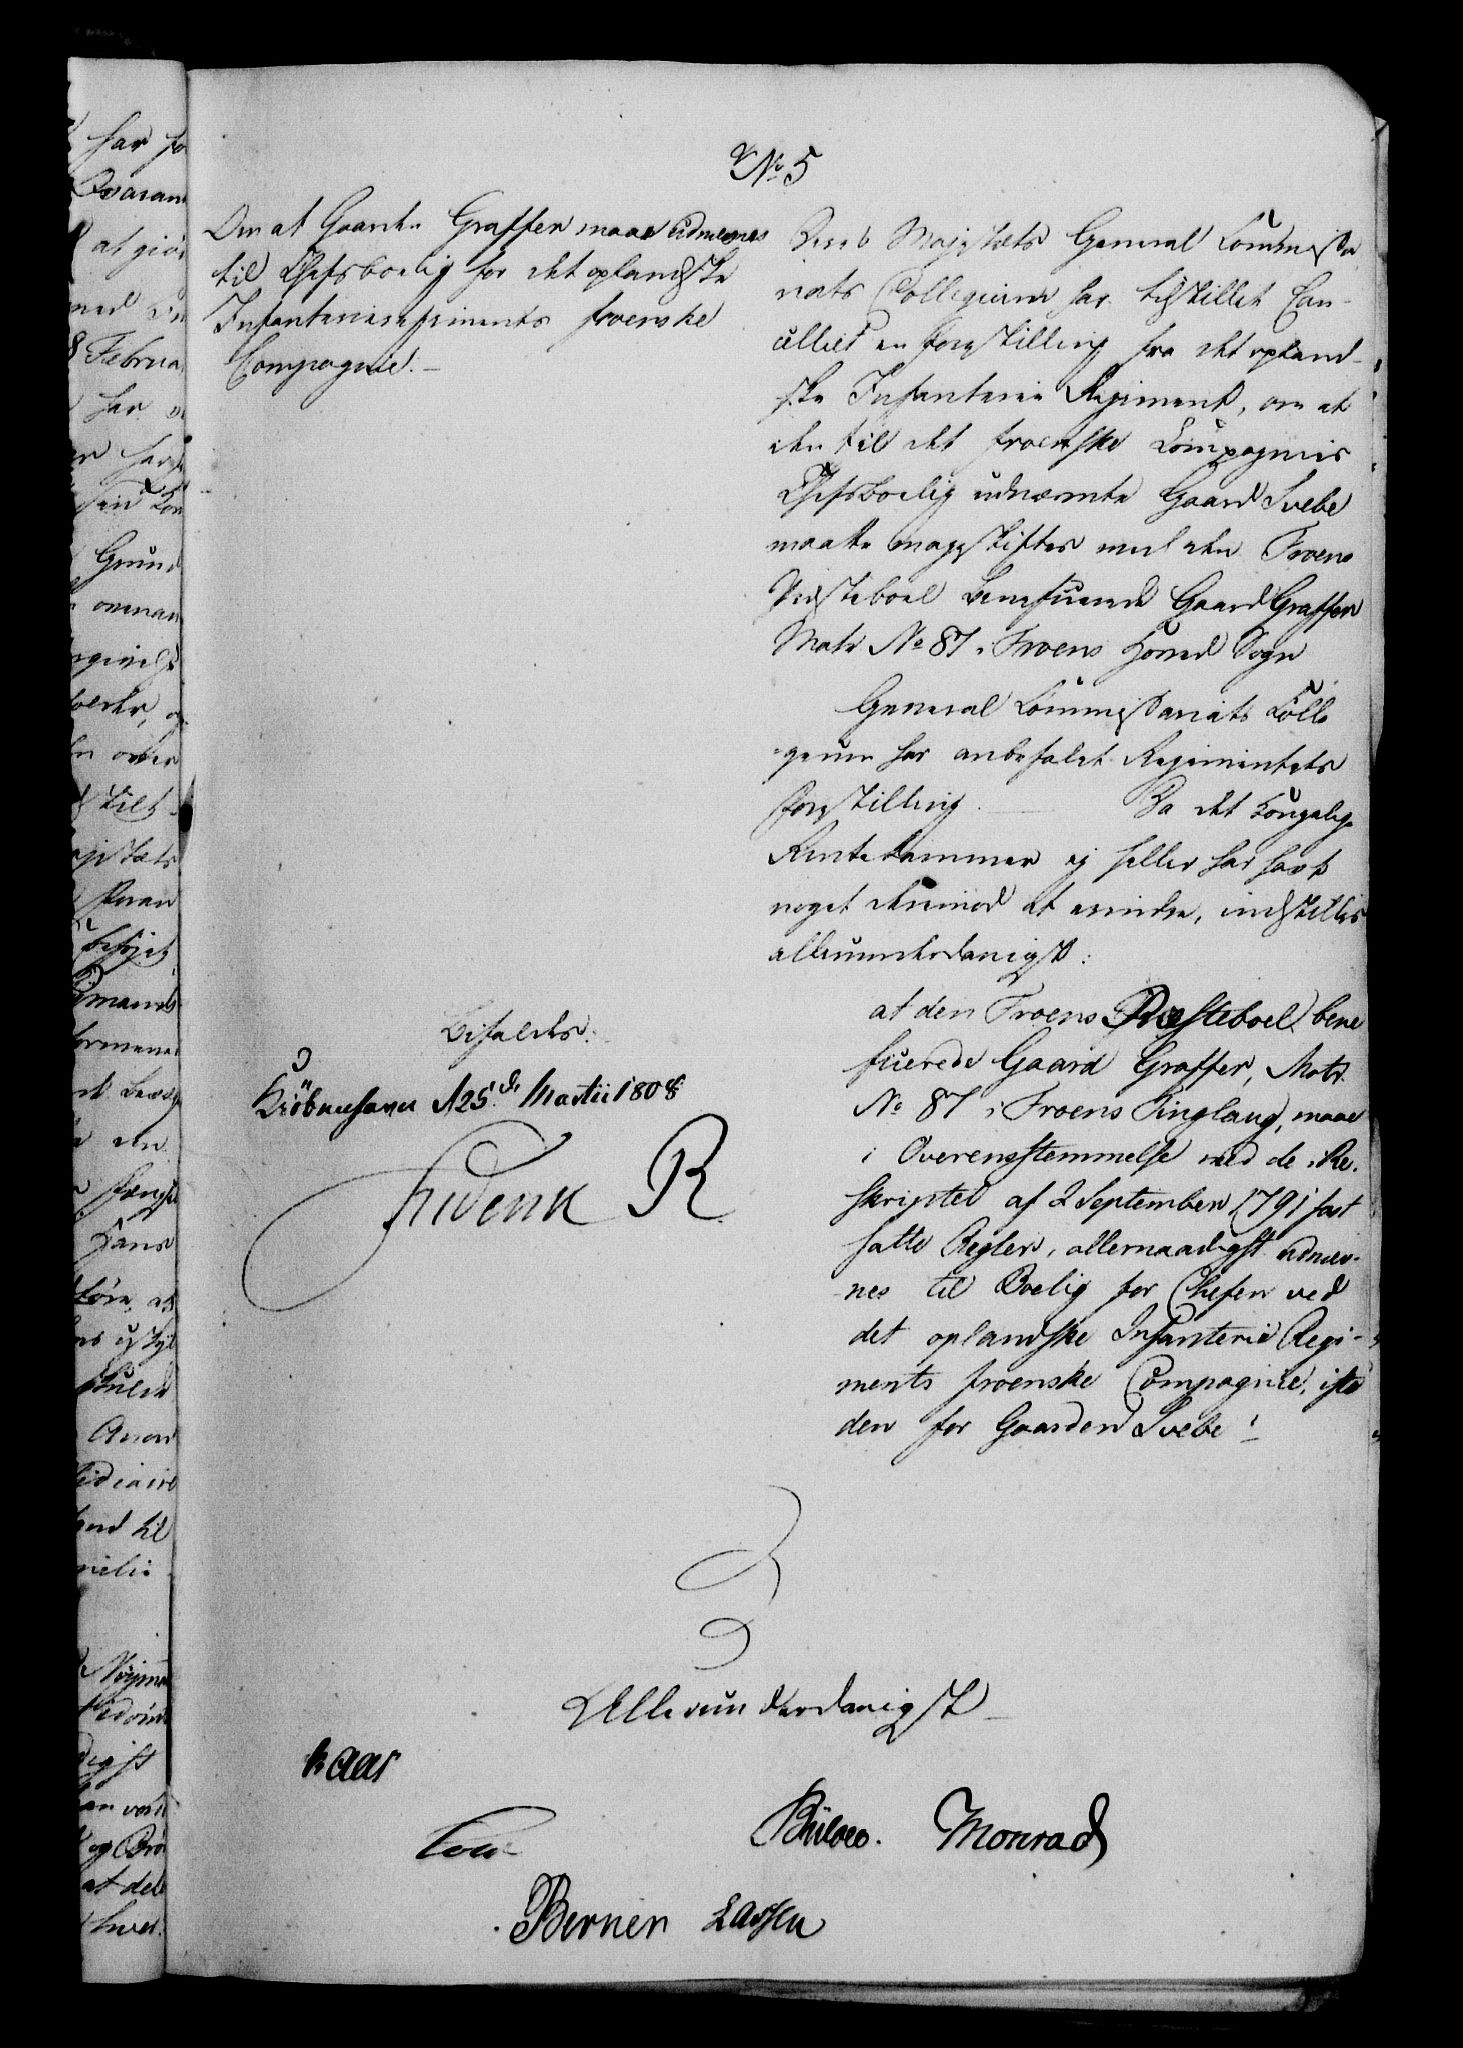 No 5
Om at Gaarden Graffer maae udnævnes
til Chefsboelig for det oplandske
Infanterieregiments froenske
Compagnie.-
Deres Majestæts General Commissa
riats Collegium har tilstillet Can-
celliet en Forestilling fra det opland-
ske Infanterie Regiment, om at
den til det froenske Compagnies
Chefsboelig udnævnte Gaard Svebe
maatte mageskiftes med den Froens
Præsteboel beneficerede Gaard Graffer
Matr No 87 i Froens Hoved Sogn
General Commissariats Colle
gium har anbefalet Regimentets
Forestilling. Da det Kongelige
Rentekammer ej heller har havt
noget derimod at erindre, indstilles
allerunderdanigst:
at den Froens Præsteboel bene
ficerede Gaard Graffer, Matr
No 87 i Froens Tinglaug, maae
i Overensstemmelse med de i Re-
skriptet af 2 September 1791 fast
satte Regler, allernaadigst udnæv-
nes til Boelig for Chefen ved
det oplandske Infanterie Regi-
ments froenske Compagnie, iste
den for Gaarden Svebe!
Bifaldes.
Kiöbenhavn d 25de Martii 1808
Friderik R
Allerunderdanigst
Kaas
Bülow. Monrad
Berner Lassen
har fo
at giör
Februa
har
Grund
Hans
hend til
at det